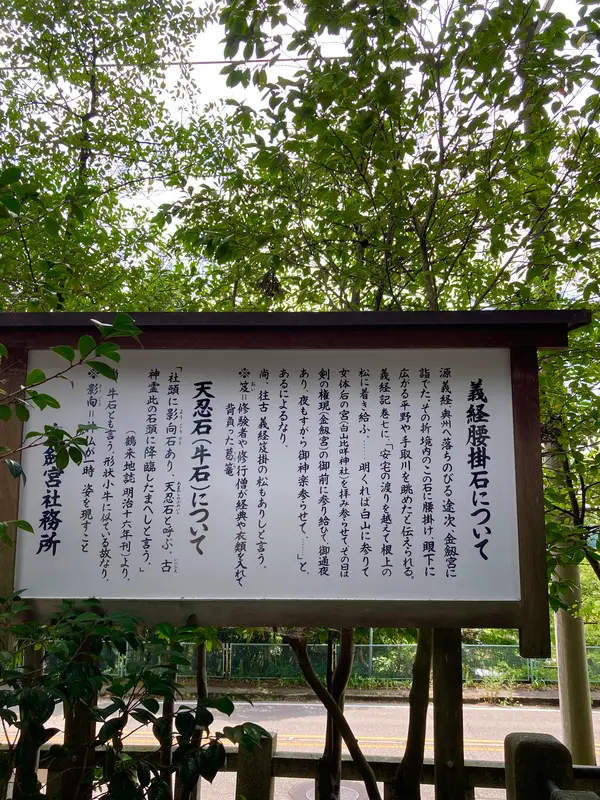 義経腰掛石について
源義経 奥州へ落ちのびる途次、金劔宮に
詣でた。その折 境内のこの石に腰掛け 眼下に
広がる平野や手取川を眺めたと伝えられる。
義経記 巻七に、「安宅の渡りを越えて根上の
松に着き給ふ、……明くれば白山に参りて
女体后の宮(白山比咩神社)を拝み参らせて、その日は
剣の権現(金劔宮)の御前に参り給ひて、御通夜
あり、夜もすがら御神楽参らせて、……」と、
あるによるなり。
尚、往古 義経笈掛の松もありしと言う。
※笈=修験者や修行僧が経典や衣類を入れて
背負った葛籠。
天忍石(牛石)について
「社頭に影向石あり、天忍石と呼ぶ、古
神霊此の石頭に降臨したまへしと言う。」
(鶴来地誌 明治十六年刊)より、
牛石とも言う 形状小牛に似ている故なり。
※影向= 仏が一時 姿を現すこと
劔宮社務所